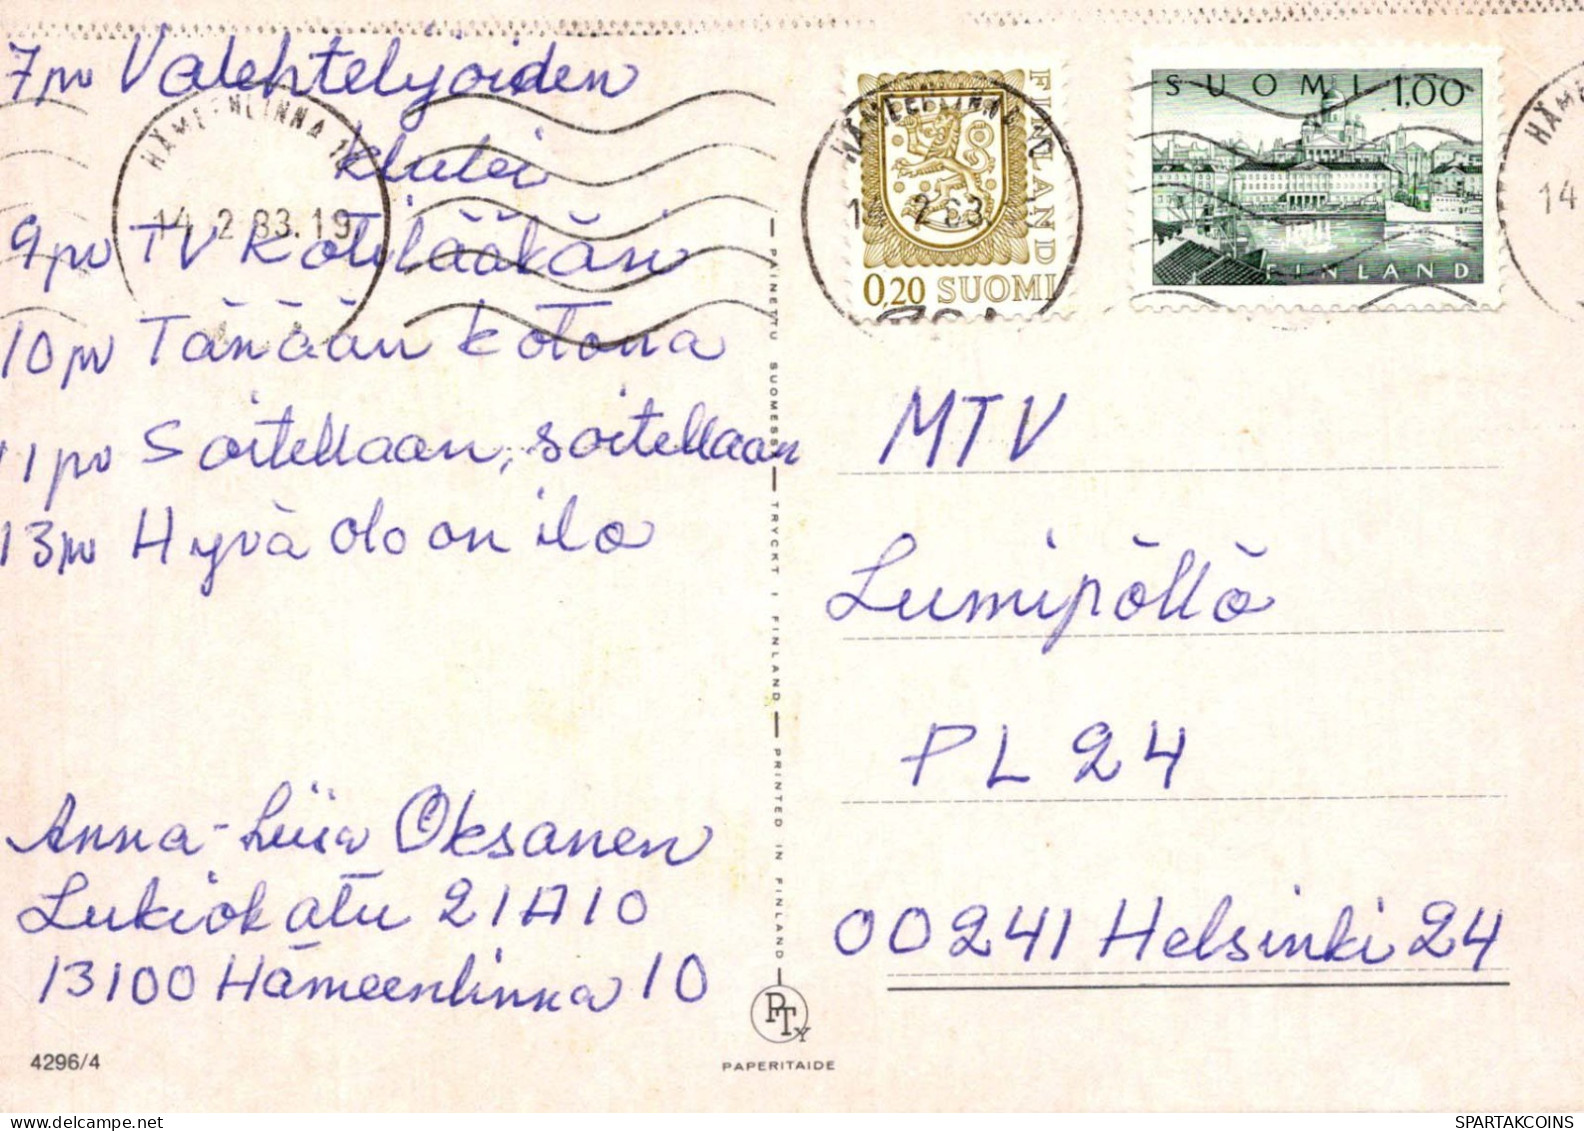 7pv Valehtelijoiden
klubi
9pv TV Kotilääkäri
10pv Tänään kotona
11pv Soitellaan, soitellaan
13pv Hyvä olo on ilo
Anna-Liisa Oksanen
Lukiokatu 21A10
13100 Hämeenlinna 10
4296/4
HÄMEENLINNA 1
14.2.83.19
PAINETTU SUOMESSA — TRYCKT I FINLAND — PRINTED IN FINLAND
PTY
PAPERITAIDE
FINLAND
0,20 SUOMI
HÄMEENLINNA
14. 2 83.
SUOMI 1.00
FINLAND
HÄME
14
MTV
Lumipöllö
PL 24
00241 Helsinki 24
SPARTAKCOINS